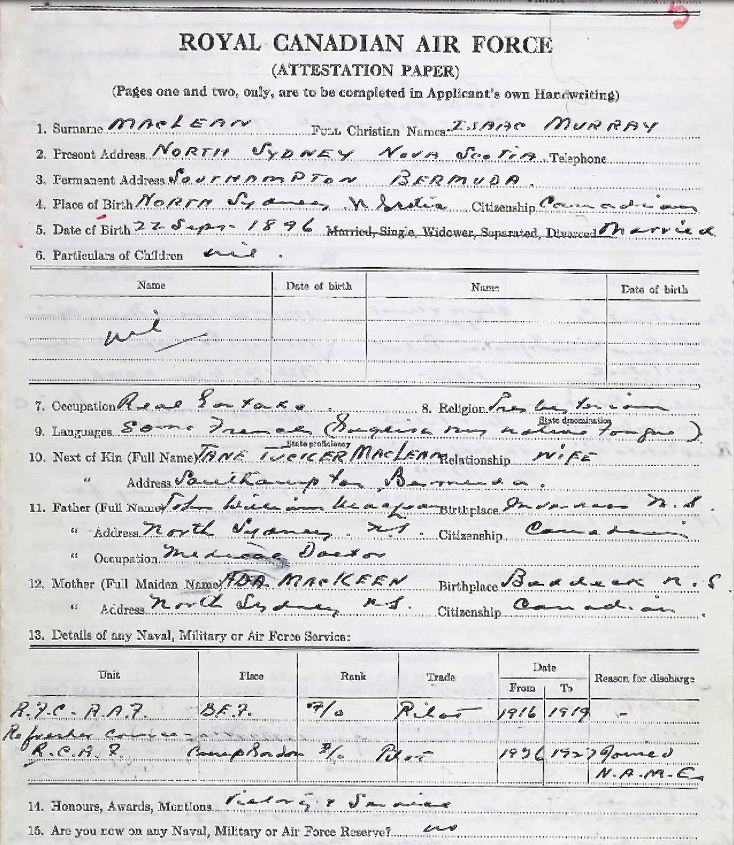 5
ROYAL CANADIAN AIR FORCE
(ATTESTATION PAPER)
(Pages one and two, only, are to be completed in Applicant's own Handwriting)
1. Surname MACLEAN FULL Christian Names ISAAC MURRAY
2. Present Address NORTH SYDNEY NOVA SCOTIA Telephone
3. Permanent Address SOUTHAMPTON BERMUDA.
4. Place of Birth NORTH Sydney N Scotia Citizenship Canadian
5. Date of Birth 22 Sept- 1896 Married, Single, Widower, Separated, Divorced Married
6. Particulars of Children nil.
Name Date of birth Name Date of birth
nil
7. Occupation Real Estate. 8. Religion Presbyterian
State denomination
9. Languages Some French (English my native tongue)
State proficiency
10. Next of Kin (Full Name) JANE TUCKER MACLEAN Relationship WIFE
" Address Southampton Bermuda.
11. Father (Full Name) John William Maclean Birthplace Inverness N.S.
" Address North Sydney. N.S. Citizenship Canadian
" Occupation Medical Doctor
12. Mother (Full Maiden Name) ADA MACKEEN Birthplace Baddeck N.S.
" Address North Sydney N.S. Citizenship Canadian.
13. Details of any Naval, Military or Air Force Service:
Unit Place Rank Trade Date Reason for discharge
From To
R.F.C - R.A.F. B.E.F. F/O Pilot 1916 1919 -
Refresher course
R.C.A.F. Camp Borden F/O Pilot 1926 1927 Joined
N.A.M.E.
14. Honours, Awards, Mentions Victory & Service
15. Are you now on any Naval, Military or Air Force Reserve? no